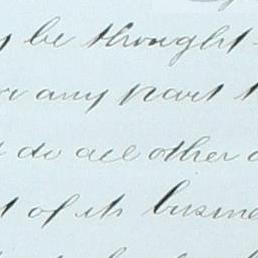 be thought
or any part
do all other
of its busine